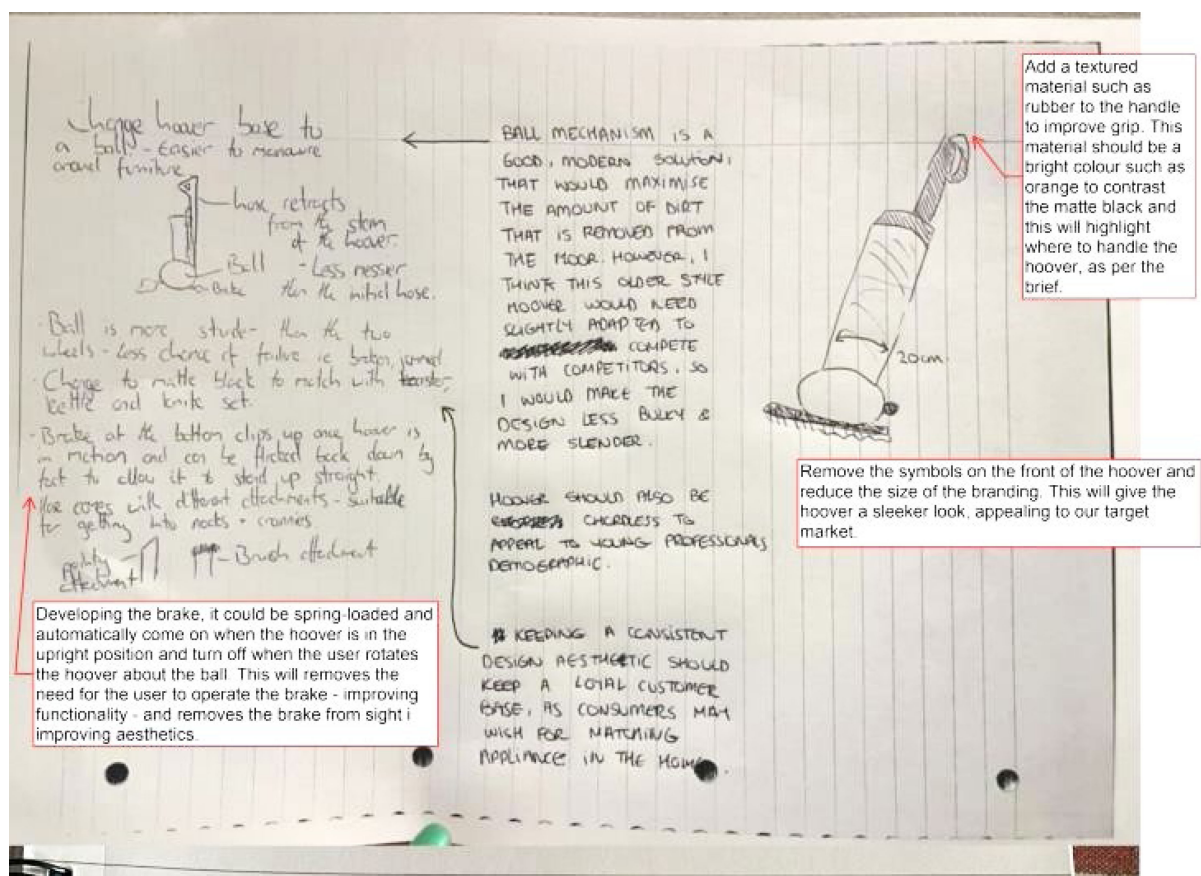 Change hoover base to
a ball - Easier to manouvre
around furniture
hose retracts
from the stem
of the hoover.
- Less messer
than the initial hose.
Ball
Brake
· Ball is more sturde- than the two
wheels - Less chance of failure ie broken, jammed
· Change to matte black to match with toaster,
kettle and knife set.
· Brake at the bottom clips up once hover is
in motion and can be flicked back down by
foot to allow it to stand up straight.
Hose comes with different attachments - suitable
for getting into nooks + crannies
attachment
- Brush attachment
Developing the brake, it could be spring-loaded and
automatically come on when the hoover is in the
upright position and turn off when the user rotates
the hoover about the ball. This will removes the
need for the user to operate the brake - improving
functionality - and removes the brake from sight i
improving aesthetics.
BALL MECHANISM IS A
GOOD, MODERN SOLUTION,
THAT WOULD MAXIMISE
THE AMOUNT OF DIRT
THAT IS REMOVED FROM
THE FLOOR. HOWEVER, I
THINK THIS OLDER STYLE
HOOVER WOULD NEED
SLIGHTLY ADAPTED TO
COMPETE
WITH COMPETITORS, SO
I WOULD MAKE THE
DESIGN LESS BULKY &
MORE SLENDER.
HOOVER SHOULD ALSO BE
CHORDLESS TO
APPEAL TO YOUNG PROFESSIONALS
DEMOGRAPHIC.
KEEPING A CONSISTENT
DESIGN AESTHETIC SHOULD
KEEP A LOYAL CUSTOMER
BASE, AS CONSUMERS MAY
WISH FOR MATCHING
APPLIANCE IN THE HOME.
20cm
Add a textured
material such as
rubber to the handle
to improve grip. This
material should be a
bright colour such as
orange to contrast
the matte black and
this will highlight
where to handle the
hoover, as per the
brief.
Remove the symbols on the front of the hoover and
reduce the size of the branding. This will give the
hoover a sleeker look, appealing to our target
market.